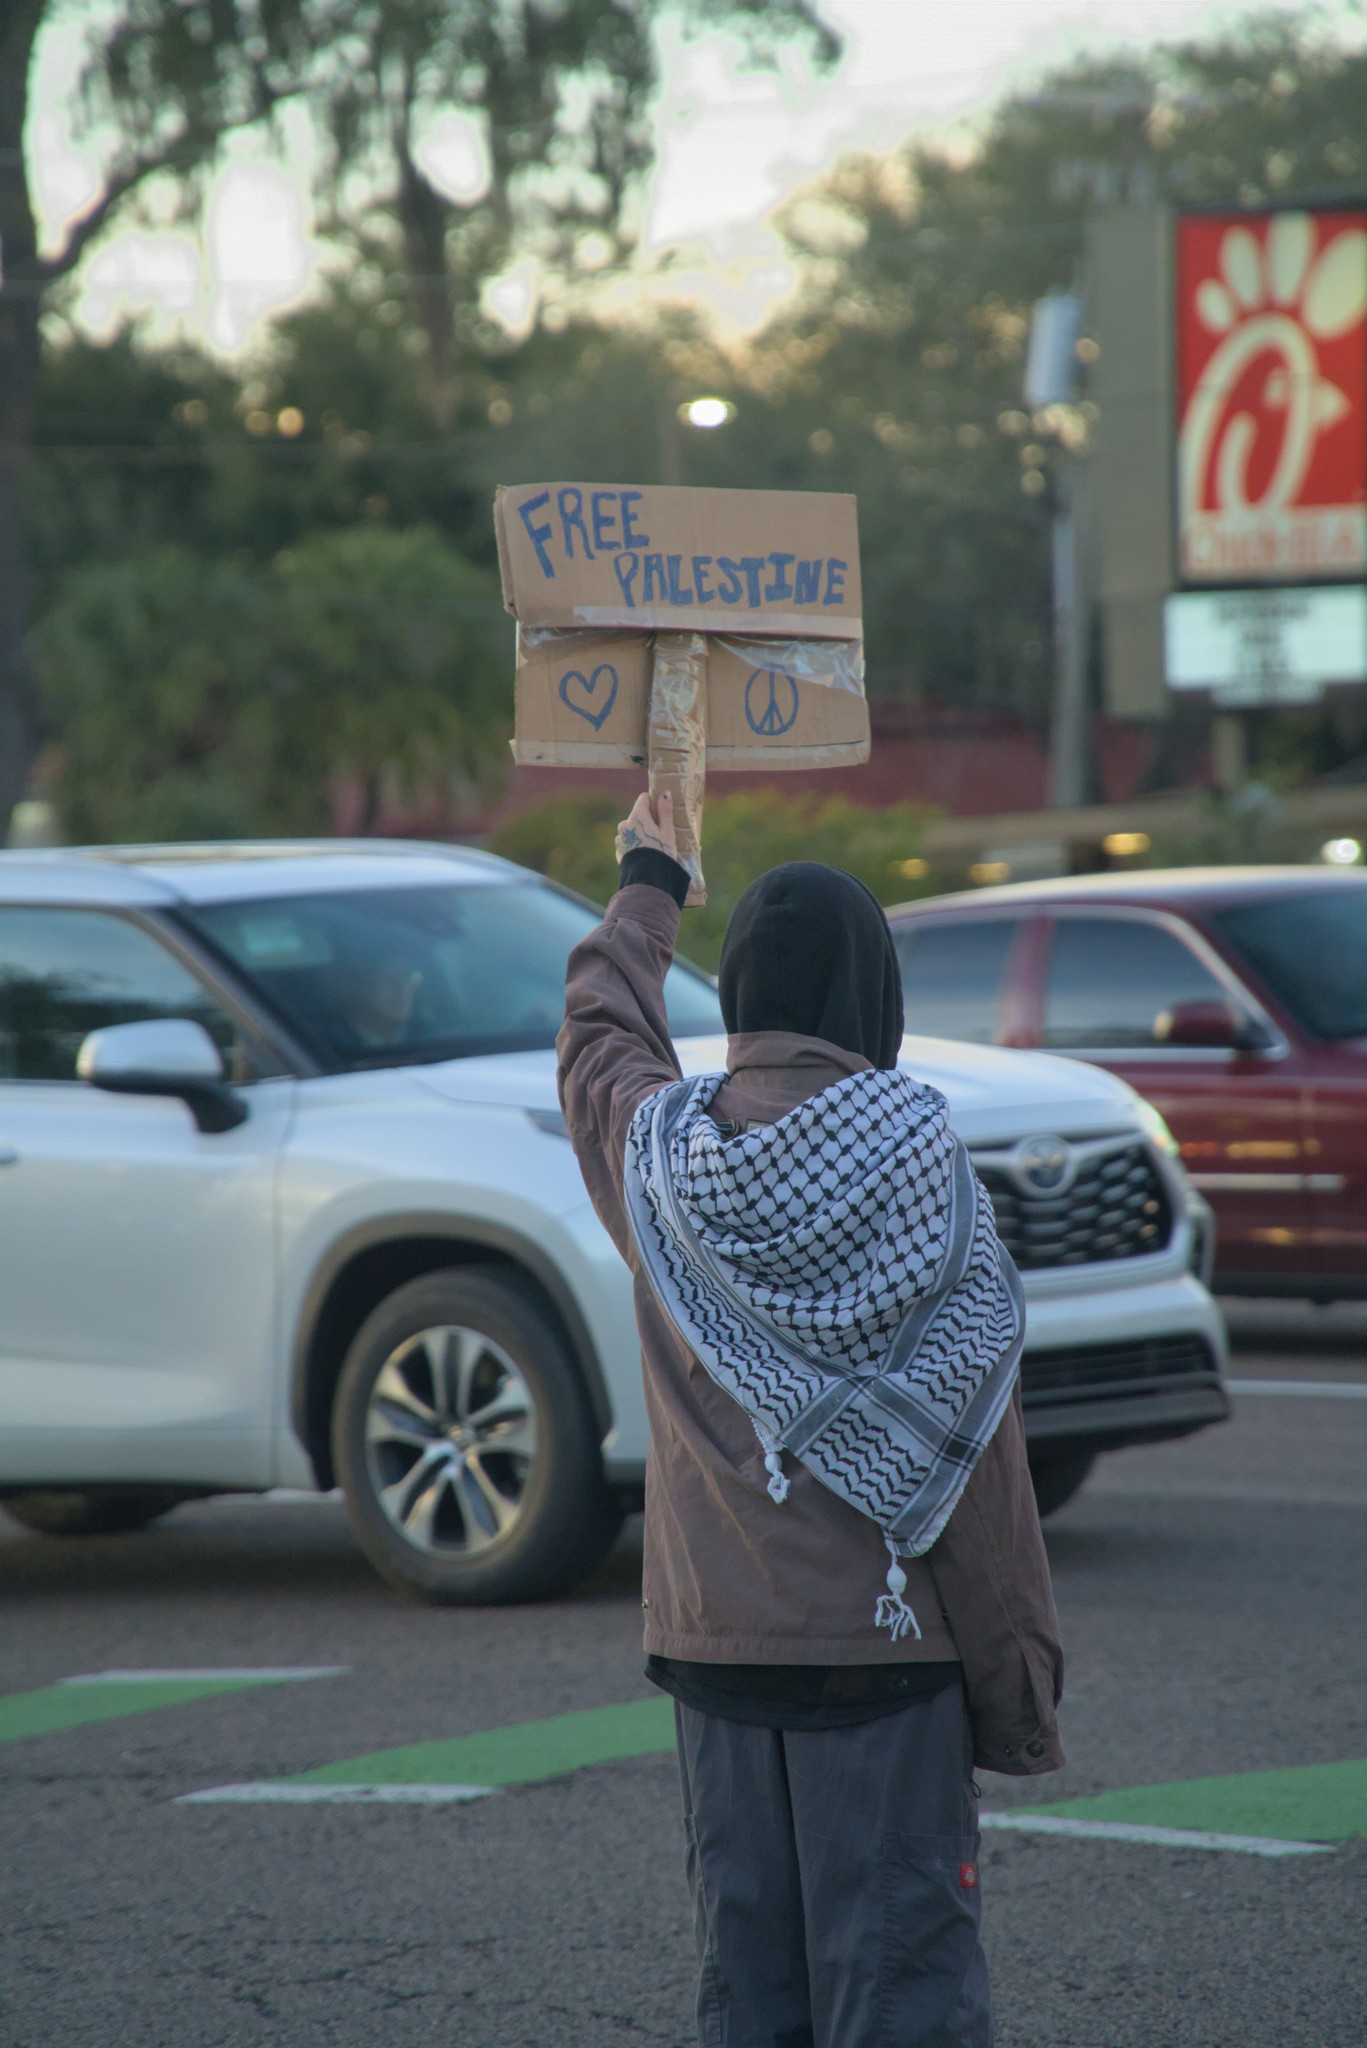 FREE
PALESTINE
Chick-fil-A